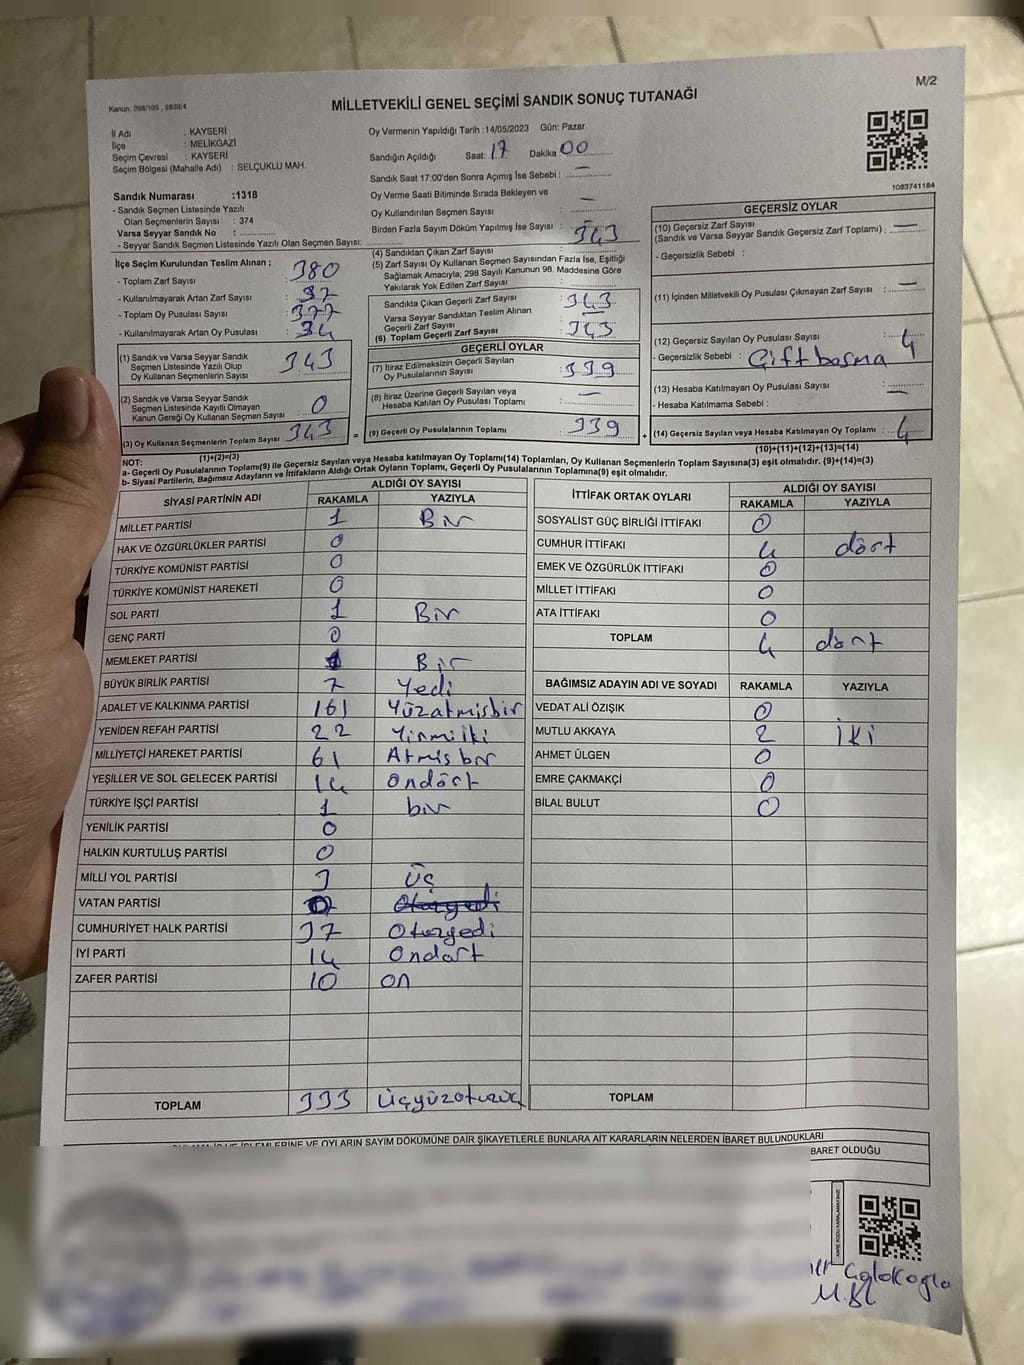 M/2
Kanun. 298/105 , 2839/4
MİLLETVEKİLİ GENEL SEÇİMİ SANDIK SONUÇ TUTANAĞI
İl Adı : KAYSERİ
İlçe : MELİKGAZİ
Seçim Çevresi : KAYSERİ
Seçim Bölgesi (Mahalle Adı) : SELÇUKLU MAH.
Sandık Numarası :1318
- Sandık Seçmen Listesinde Yazılı
Olan Seçmenlerin Sayısı : 374
Varsa Seyyar Sandık No :
- Seyyar Sandık Seçmen Listesinde Yazılı Olan Seçmen Sayısı:
Oy Vermenin Yapıldığı Tarih :14/05/2023 Gün: Pazar
Sandığın Açıldığı Saat: 17 Dakika 00
Sandık Saat 17:00'den Sonra Açımış İse Sebebi : —
Oy Verme Saati Bitiminde Sırada Bekleyen ve
Oy Kullandırılan Seçmen Sayısı : —
Birden Fazla Sayım Döküm Yapılmış İse Sayısı :
1083741184
İlçe Seçim Kurulundan Teslim Alınan ;
- Toplam Zarf Sayısı : 380
- Kullanılmayarak Artan Zarf Sayısı : 37
- Toplam Oy Pusulası Sayısı : 377
- Kullanılmayarak Artan Oy Pusulası : 34
(1) Sandık ve Varsa Seyyar Sandık
Seçmen Listesinde Yazılı Olup
Oy Kullanan Seçmenlerin Sayısı : 343
(2) Sandık ve Varsa Seyyar Sandık
Seçmen Listesinde Kayıtlı Olmayan
Kanun Gereği Oy Kullanan Seçmen Sayısı : 0
(3) Oy Kullanan Seçmenlerin Toplam Sayısı : 343
(1)+(2)=(3)
(4) Sandıktan Çıkan Zarf Sayısı : 343
(5) Zarf Sayısı Oy Kullanan Seçmen Sayısından Fazla İse, Eşitliği
Sağlamak Amacıyla; 298 Sayılı Kanunun 98. Maddesine Göre
Yakılarak Yok Edilen Zarf Sayısı :
Sandıkta Çıkan Geçerli Zarf Sayısı : 343
Varsa Seyyar Sandıktan Teslim Alınan
Geçerli Zarf Sayısı : —
(6) Toplam Geçerli Zarf Sayısı : 343
GEÇERLİ OYLAR
(7) İtiraz Edilmeksizin Geçerli Sayılan
Oy Pusulalarının Sayısı : 339
(8) İtiraz Üzerine Geçerli Sayılan veya
Hesaba Katılan Oy Pusulası Toplamı : —
= (9) Geçerli Oy Pusulalarının Toplamı : 339 +
GEÇERSİZ OYLAR
(10) Geçersiz Zarf Sayısı
(Sandık ve Varsa Seyyar Sandık Geçersiz Zarf Toplamı) : —
- Geçersizlik Sebebi :
(11) İçinden Milletvekili Oy Pusulası Çıkmayan Zarf Sayısı : —
(12) Geçersiz Sayılan Oy Pusulası Sayısı : 4
- Geçersizlik Sebebi : Çift basma
(13) Hesaba Katılmayan Oy Pusulası Sayısı : —
- Hesaba Katılmama Sebebi :
(14) Geçersiz Sayılan veya Hesaba Katılmayan Oy Toplamı : 4
(10)+(11)+(12)+(13)=(14)
NOT:
a- Geçerli Oy Pusulalarının Toplamı(9) ile Geçersiz Sayılan veya Hesaba katılmayan Oy Toplamı(14) Toplamları, Oy Kullanan Seçmenlerin Toplam Sayısına(3) eşit olmalıdır. (9)+(14)=(3)
b- Siyasi Partilerin, Bağımsız Adayların ve İttifakların Aldığı Ortak Oyların Toplamı, Geçerli Oy Pusulalarının Toplamına(9) eşit olmalıdır.
SİYASİ PARTİNİN ADI ALDIĞI OY SAYISI
RAKAMLA YAZIYLA
MİLLET PARTİSİ 1 Bir
HAK VE ÖZGÜRLÜKLER PARTİSİ 0
TÜRKİYE KOMÜNİST PARTİSİ 0
TÜRKİYE KOMÜNİST HAREKETİ 0
SOL PARTİ 1 Bir
GENÇ PARTİ 0
MEMLEKET PARTİSİ 1 Bir
BÜYÜK BİRLİK PARTİSİ 7 Yedi
ADALET VE KALKINMA PARTİSİ 161 Yüzatmışbir
YENİDEN REFAH PARTİSİ 22 Yirmiiki
MİLLİYETÇİ HAREKET PARTİSİ 61 Atmışbir
YEŞİLLER VE SOL GELECEK PARTİSİ 14 Ondört
TÜRKİYE İŞÇİ PARTİSİ 1 bir
YENİLİK PARTİSİ 0
HALKIN KURTULUŞ PARTİSİ 0
MİLLİ YOL PARTİSİ 3 Üç
VATAN PARTİSİ 0 Otuzyedi
CUMHURİYET HALK PARTİSİ 37 Otuzyedi
İYİ PARTİ 14 Ondört
ZAFER PARTİSİ 10 on
TOPLAM 333 Üçyüzotuzüç
İTTİFAK ORTAK OYLARI ALDIĞI OY SAYISI
RAKAMLA YAZIYLA
SOSYALİST GÜÇ BİRLİĞİ İTTİFAKI 0
CUMHUR İTTİFAKI 4 dört
EMEK VE ÖZGÜRLÜK İTTİFAKI 0
MİLLET İTTİFAKI 0
ATA İTTİFAKI 0
TOPLAM 4 dört
BAĞIMSIZ ADAYIN ADI VE SOYADI RAKAMLA YAZIYLA
VEDAT ALİ ÖZIŞIK 0
MUTLU AKKAYA 2 İKİ
AHMET ÜLGEN 0
EMRE ÇAKMAKÇİ 0
BİLAL BULUT 0
TOPLAM
VE OYLARIN SAYIM DÖKÜMÜNE DAİR ŞİKAYETLERLE BUNLARA AİT KARARLARIN NELERDEN İBARET BULUNDUKLARI
BARET OLDUĞU